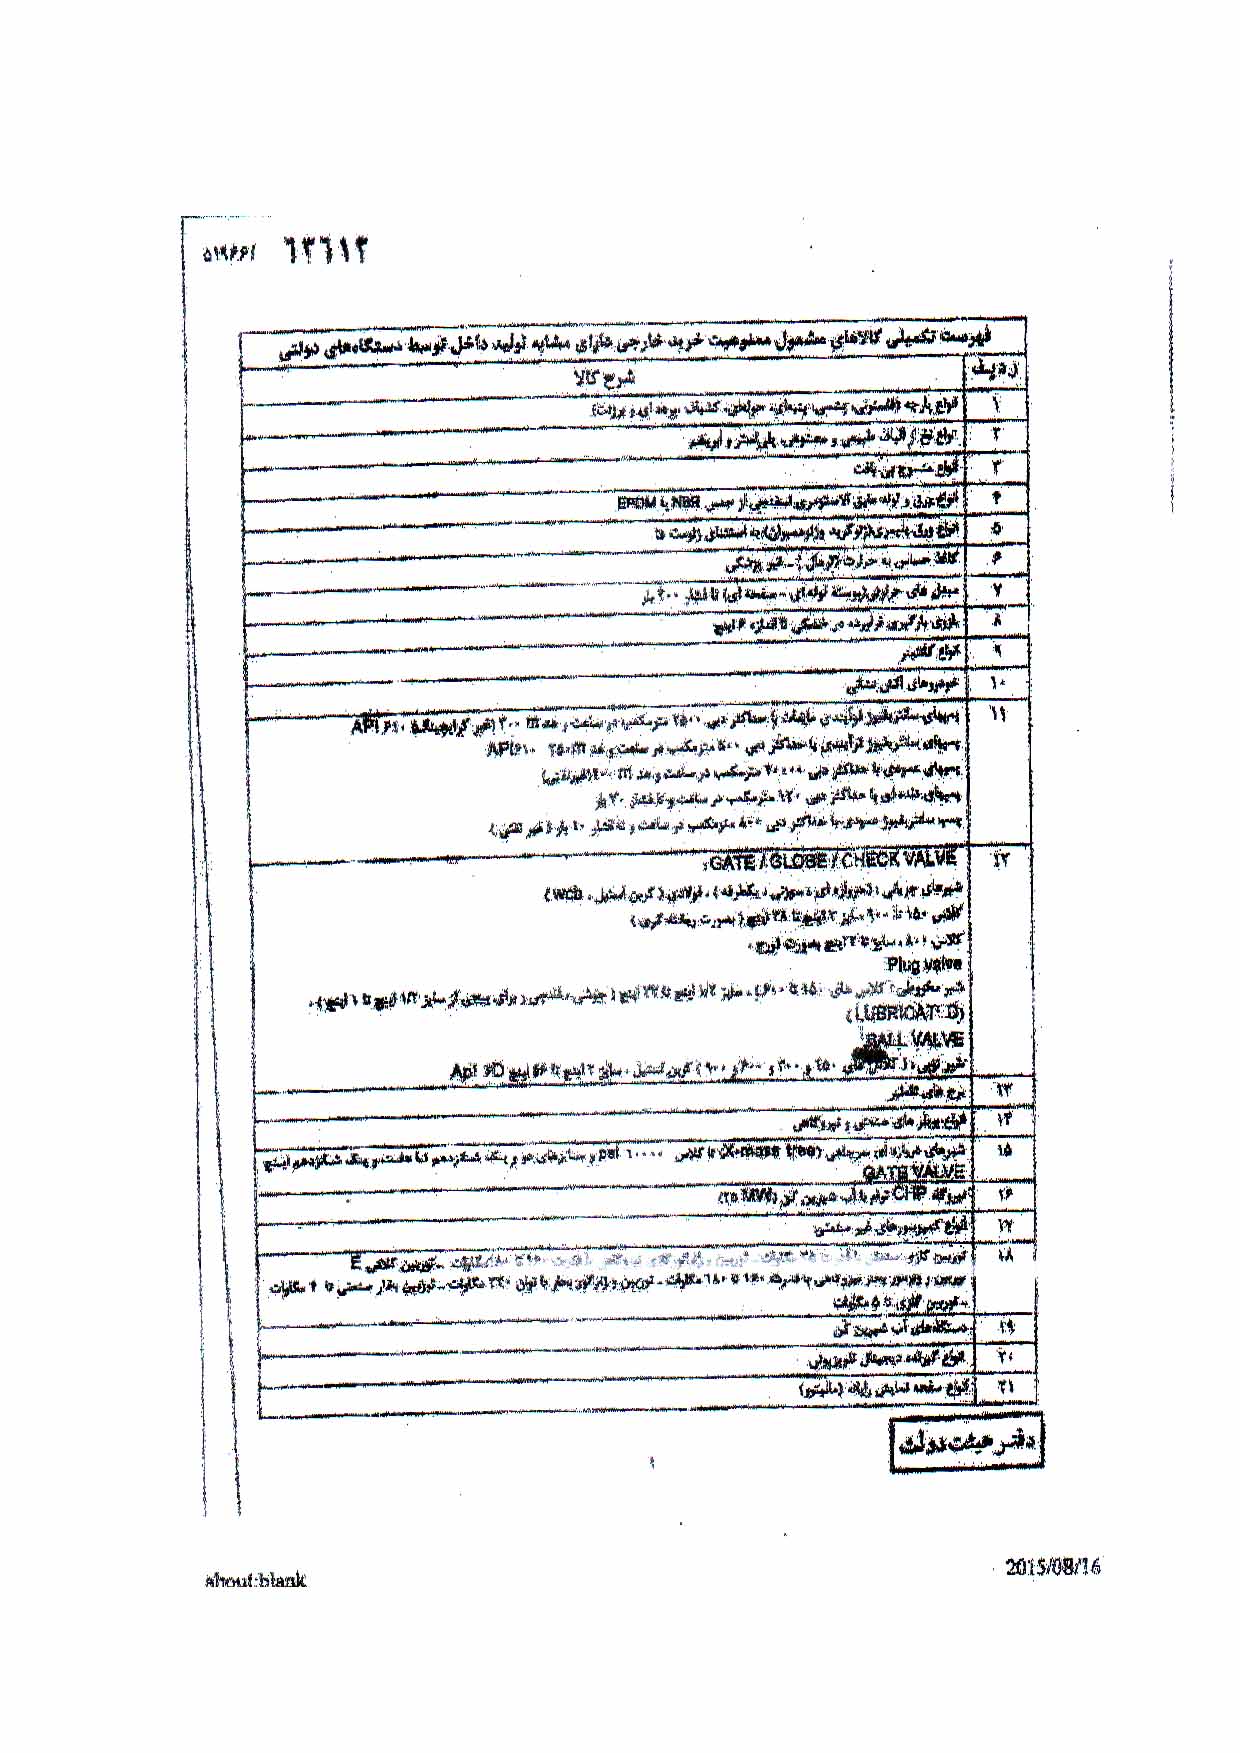 ۶۳۶۱۳ /۵۱۹۶۶
فهرست تکمیلی کالاهای مشمول ممنوعیت خرید خارجی دارای مشابه تولید داخل توسط دستگاه‌های دولتی
ردیف شرح کالا
۱ انواع پارچه (فاستونی، پشمی، پنبه‌ای، حوله‌ای، کشباف، پرده ای و برزنت)
۲ انواع نخ از الیاف طبیعی و مصنوعی، پلی‌استر و ابریشم
۳ انواع منسوج بی بافت
۴ انواع ورق و لوله عایق الاستومری اسفنجی از جنس NBR یا EPDM
۵ انواع ورق به استثنای
۶ کاغذ حساس به حرارت (ترمال) - غیر پزشکی
۷ مبدل های حرارتی (پوسته لوله‌ای - صفحه ای) تا فشار ۲۰۰ بار
۸ بازوی بارگیری فرآورده در خشکی تا اندازه ۶ اینچ
۹ انواع کانتینر
۱۰ خودروهای آتش نشانی
۱۱ پمپهای سانتریفیوژ فرآیندی مایعات با حداکثر دبی ۲۵۰۰ مترمکعب در ساعت و هد ۳۰۰ m (غیر API ۶۱۰
پمپهای سانتریفیوژ فرآیندی با حداکثر دبی ۵۰۰ مترمکعب در ساعت و هد ۲۵۰ m API ۶۱۰
پمپهای عمودی با حداکثر دبی ۲۰۰۰۰ مترمکعب در ساعت و هد m (غیرنفتی)
پمپهای دنده ای با حداکثر دبی ۱۲۰ مترمکعب در ساعت و تا فشار ۲۰ بار
پمپ سانتریفیوژ عمودی با حداکثر دبی ۸۰۰ مترمکعب در ساعت و تا فشار ۱۰ بار (غیر نفتی)
۱۲ GATE / GLOBE / CHECK VALVE:
شیرهای جریانی (دروازه ای، سوزنی، یکطرفه)، فولادی (کربن استیل، WCB)
کلاس ۱۵۰ تا ۹۰۰ سایز ۲ اینچ تا ۲۸ اینچ (بصورت ریخته گری)
کلاس ۸۰۰، سایز تا ۲ اینچ بصورت فورج.
Plug valve
شیر مخروطی: کلاس های ۱۵۰ تا ۶۰۰، سایز ۱/۲ اینچ تا ۲۴ اینچ (جوشی، فلنجی و برای پیچی از سایز ۱/۲ اینچ تا ۱ اینچ).
(LUBRICATED)
BALL VALVE
شیر توپی: (کلاس های ۱۵۰ و ۳۰۰ و ۶۰۰ و ۹۰۰) کربن استیل، سایز ۲ اینچ تا ۵۶ اینچ Api 6D
۱۳ برج های تقطیر
۱۴ انواع بویلر های صنعتی و نیروگاهی
۱۵ شیرهای دروازه ای سرچاهی (X-mass tree) تا کلاس ۱۰۰۰۰ psi و سایزهای دو و یک شانزدهم تا هفت و یک شانزدهم اینچ
GATE VALVE
۱۶ نیروگاه CHP توام با آب شیرین کن (۲۵ MW)
۱۷ انواع کمپرسورهای غیر صنعتی
۱۸ توربین گازی صنعتی توربین کلاس E
توربین و ژنراتور بخار نیروگاهی با قدرت ۱۶۰ تا ۱۸۰ مگاوات - توربین و ژنراتور بخار با توان ۳۲۰ مگاوات - توربین بخار صنعتی تا ۴ مگاوات
- توربین گازی تا ۵ مگاوات
۱۹ دستگاه‌های آب شیرین کن
۲۰ انواع گیرنده دیجیتال تلویزیونی
۲۱ انواع صفحه نمایش رایانه (مانیتور)
دفتر هیئت دولت
۱
about:blank 2015/08/16